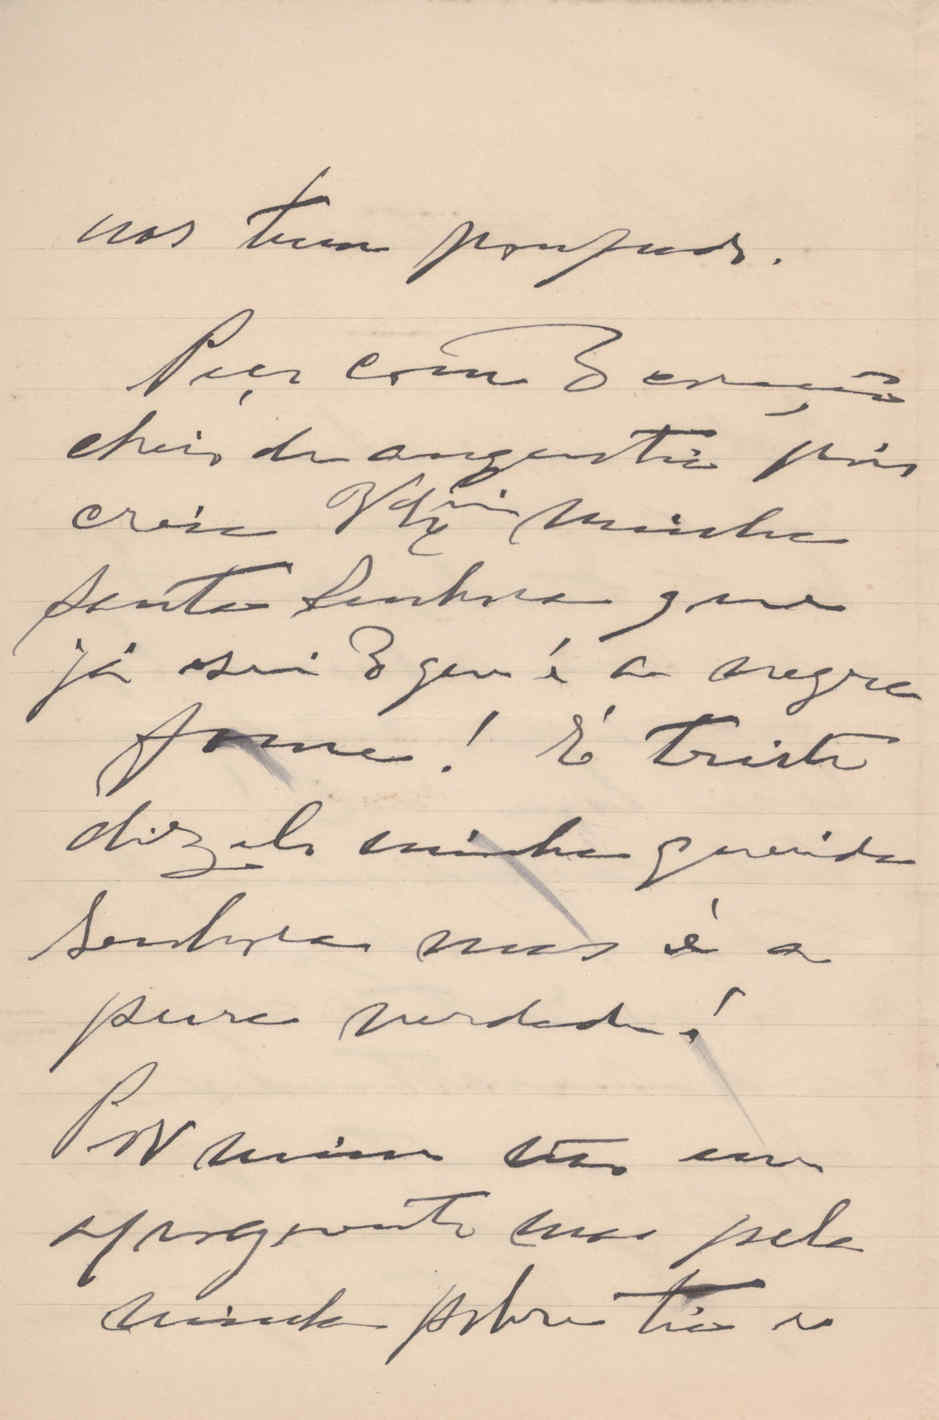 nos tem poupado.
Peço com o coração
cheio de angustia pois
creia V Exª minha
santa Senhora que
já sei o que é a negra
fome! É triste
dizel-o minha querida
Senhora mas é a
pura verdade!
Por mim não me
apoquento mas pela
minha pobre tia e